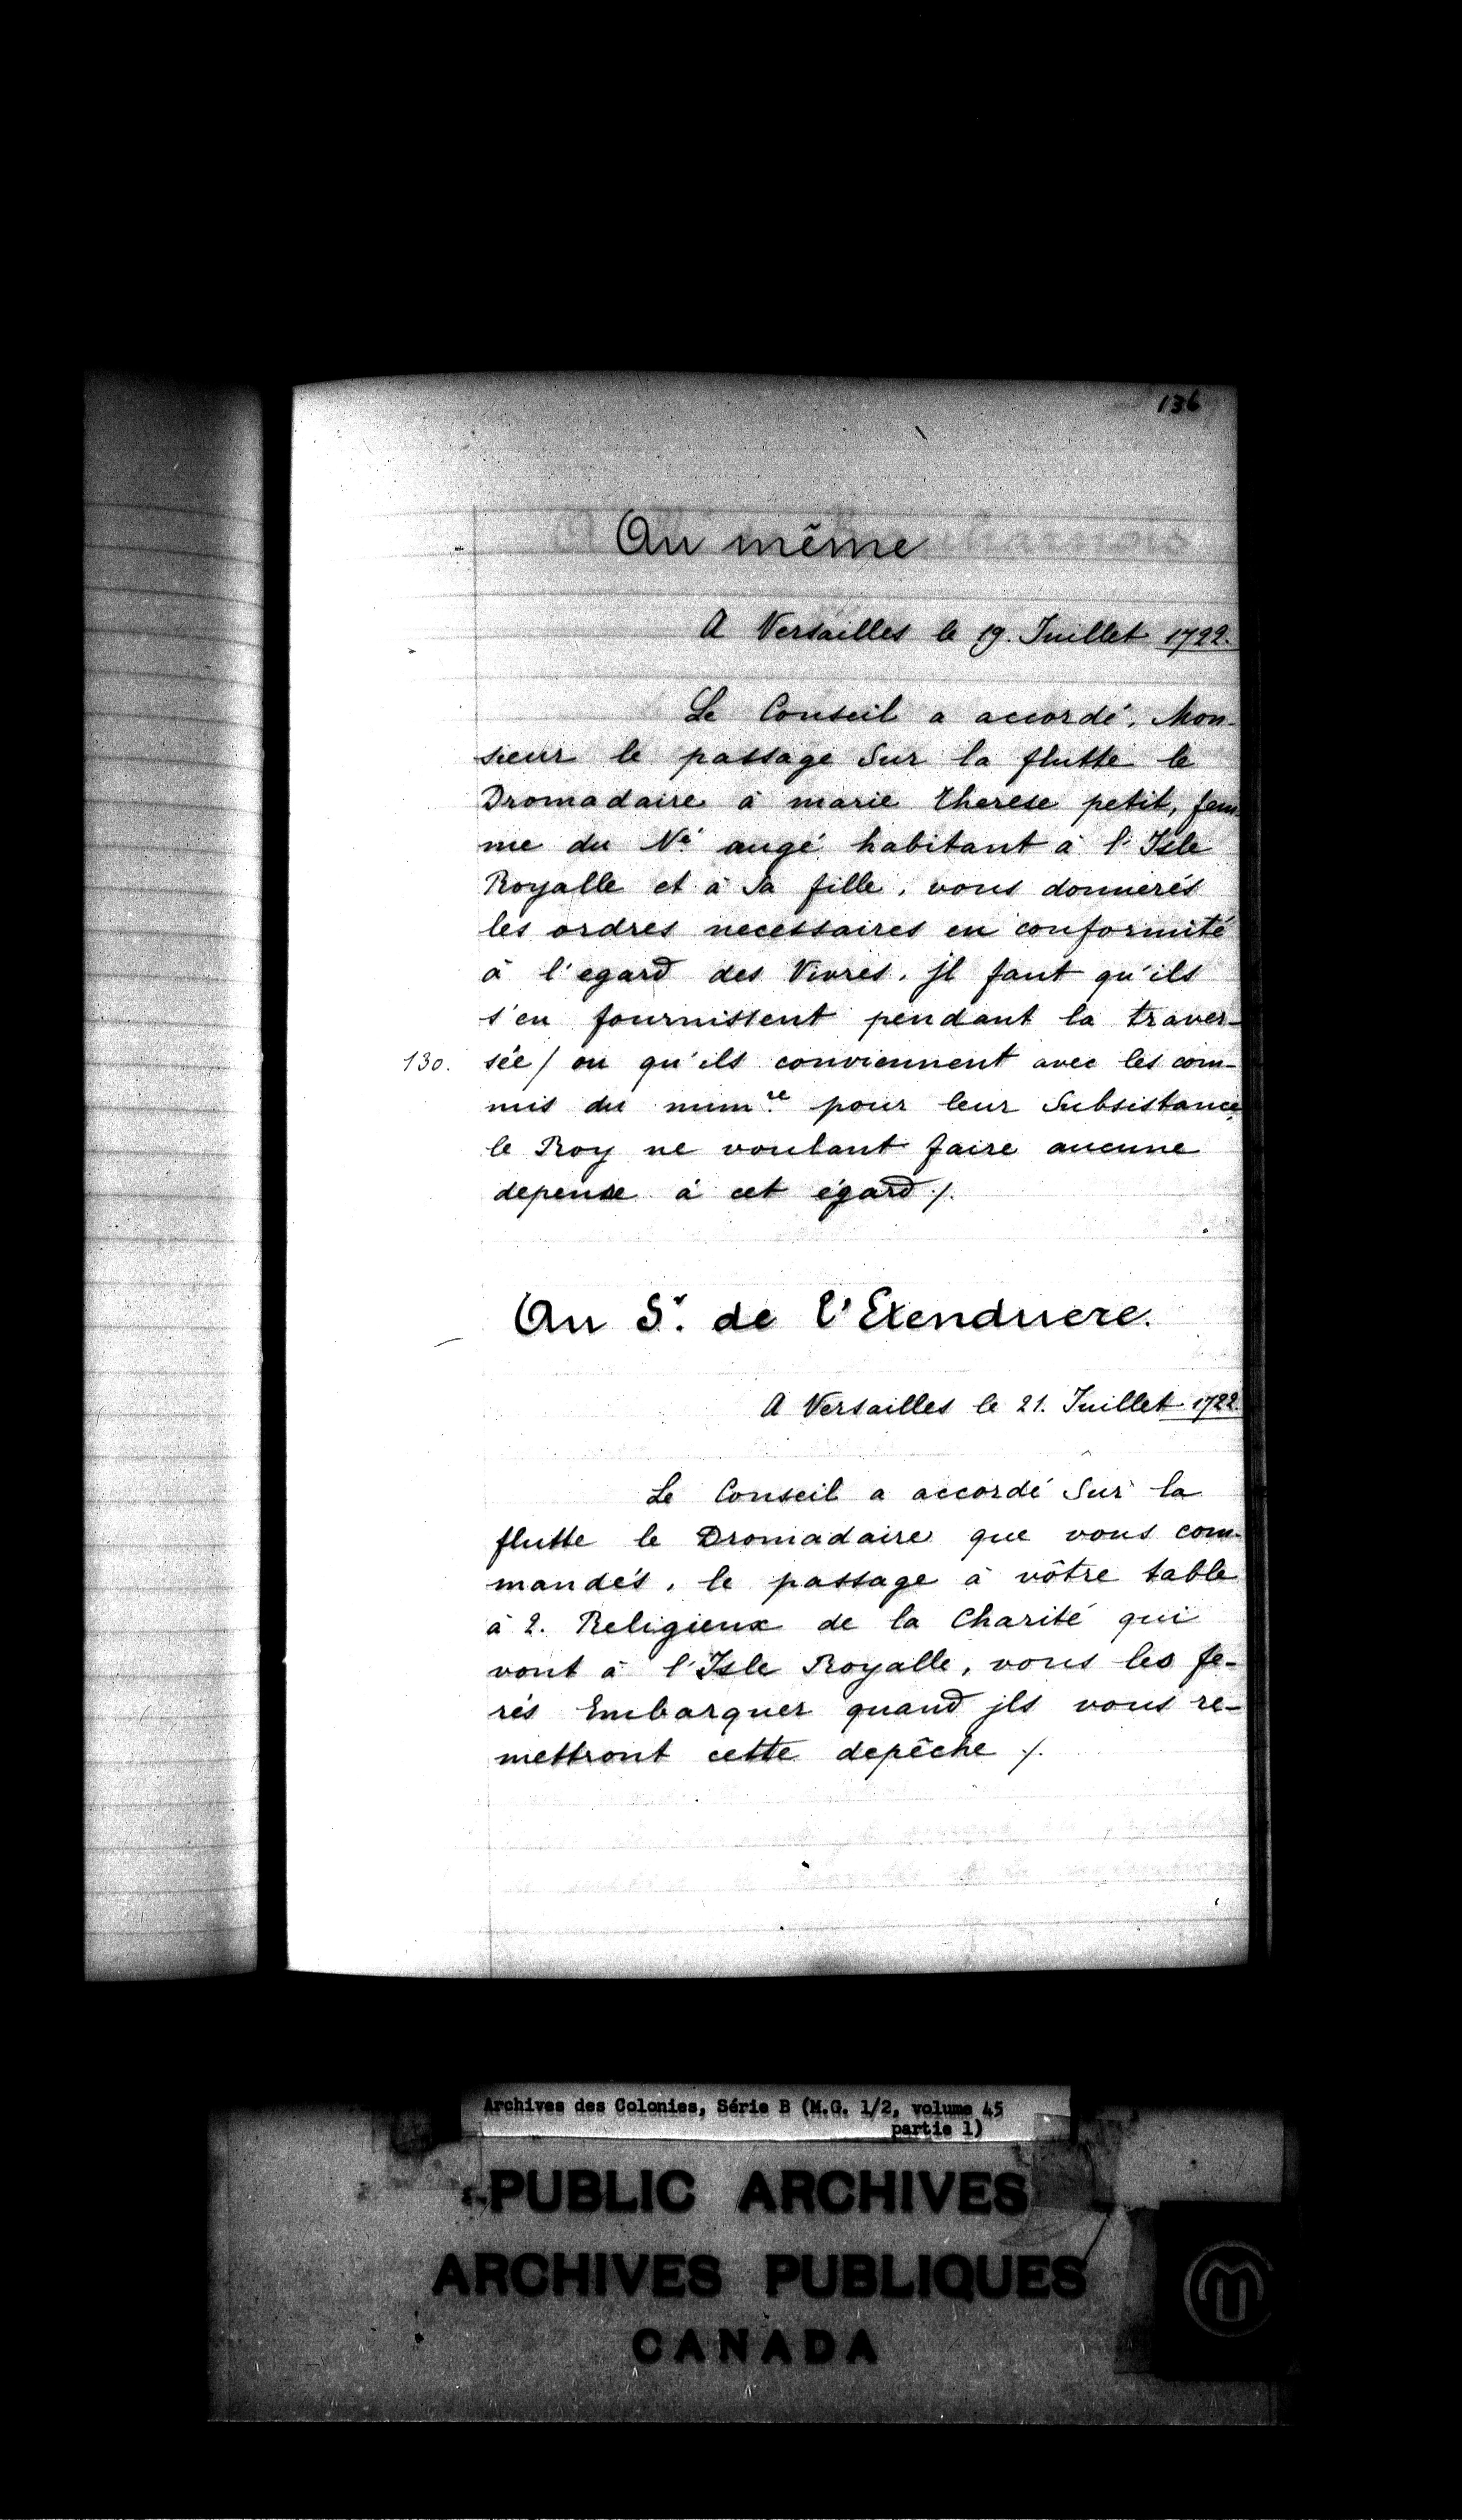 136
Au même
A Versailles le 19. Juillet 1722.
Le Conseil a accordé, Mon-
sieur le passage Sur la flutte le
Dromadaire à marie therese petit, fem-
me du Né augé habitant à l'Isle
Royalle et à Sa fille, vous donnerés
les ordres necessaires en conformité
à l'egard des Vivres, jl faut qu'ils
s'en fournissent pendant la traver-
130. sée / ou qu'ils conviennent avec les com-
mis du munre pour leur Subsistance,
le Roy ne voulant faire aucune
depense à cet égard ./.
Au Sr. de l'Etenduere.
A Versailles le 21. Juillet 1722.
Le Conseil a accordé Sur la
flutte le Dromadaire que vous com-
mandés, le passage à vôtre table
à 2. Religieux de la Charité qui
vont à l'Isle Royalle, vous les fe-
rés Embarquer quand jls vous re-
mettront cette depêche ./.
Archives des Colonies, Série B (M.G. 1/2, volume 45
partie 1)
PUBLIC ARCHIVES
ARCHIVES PUBLIQUES
CANADA